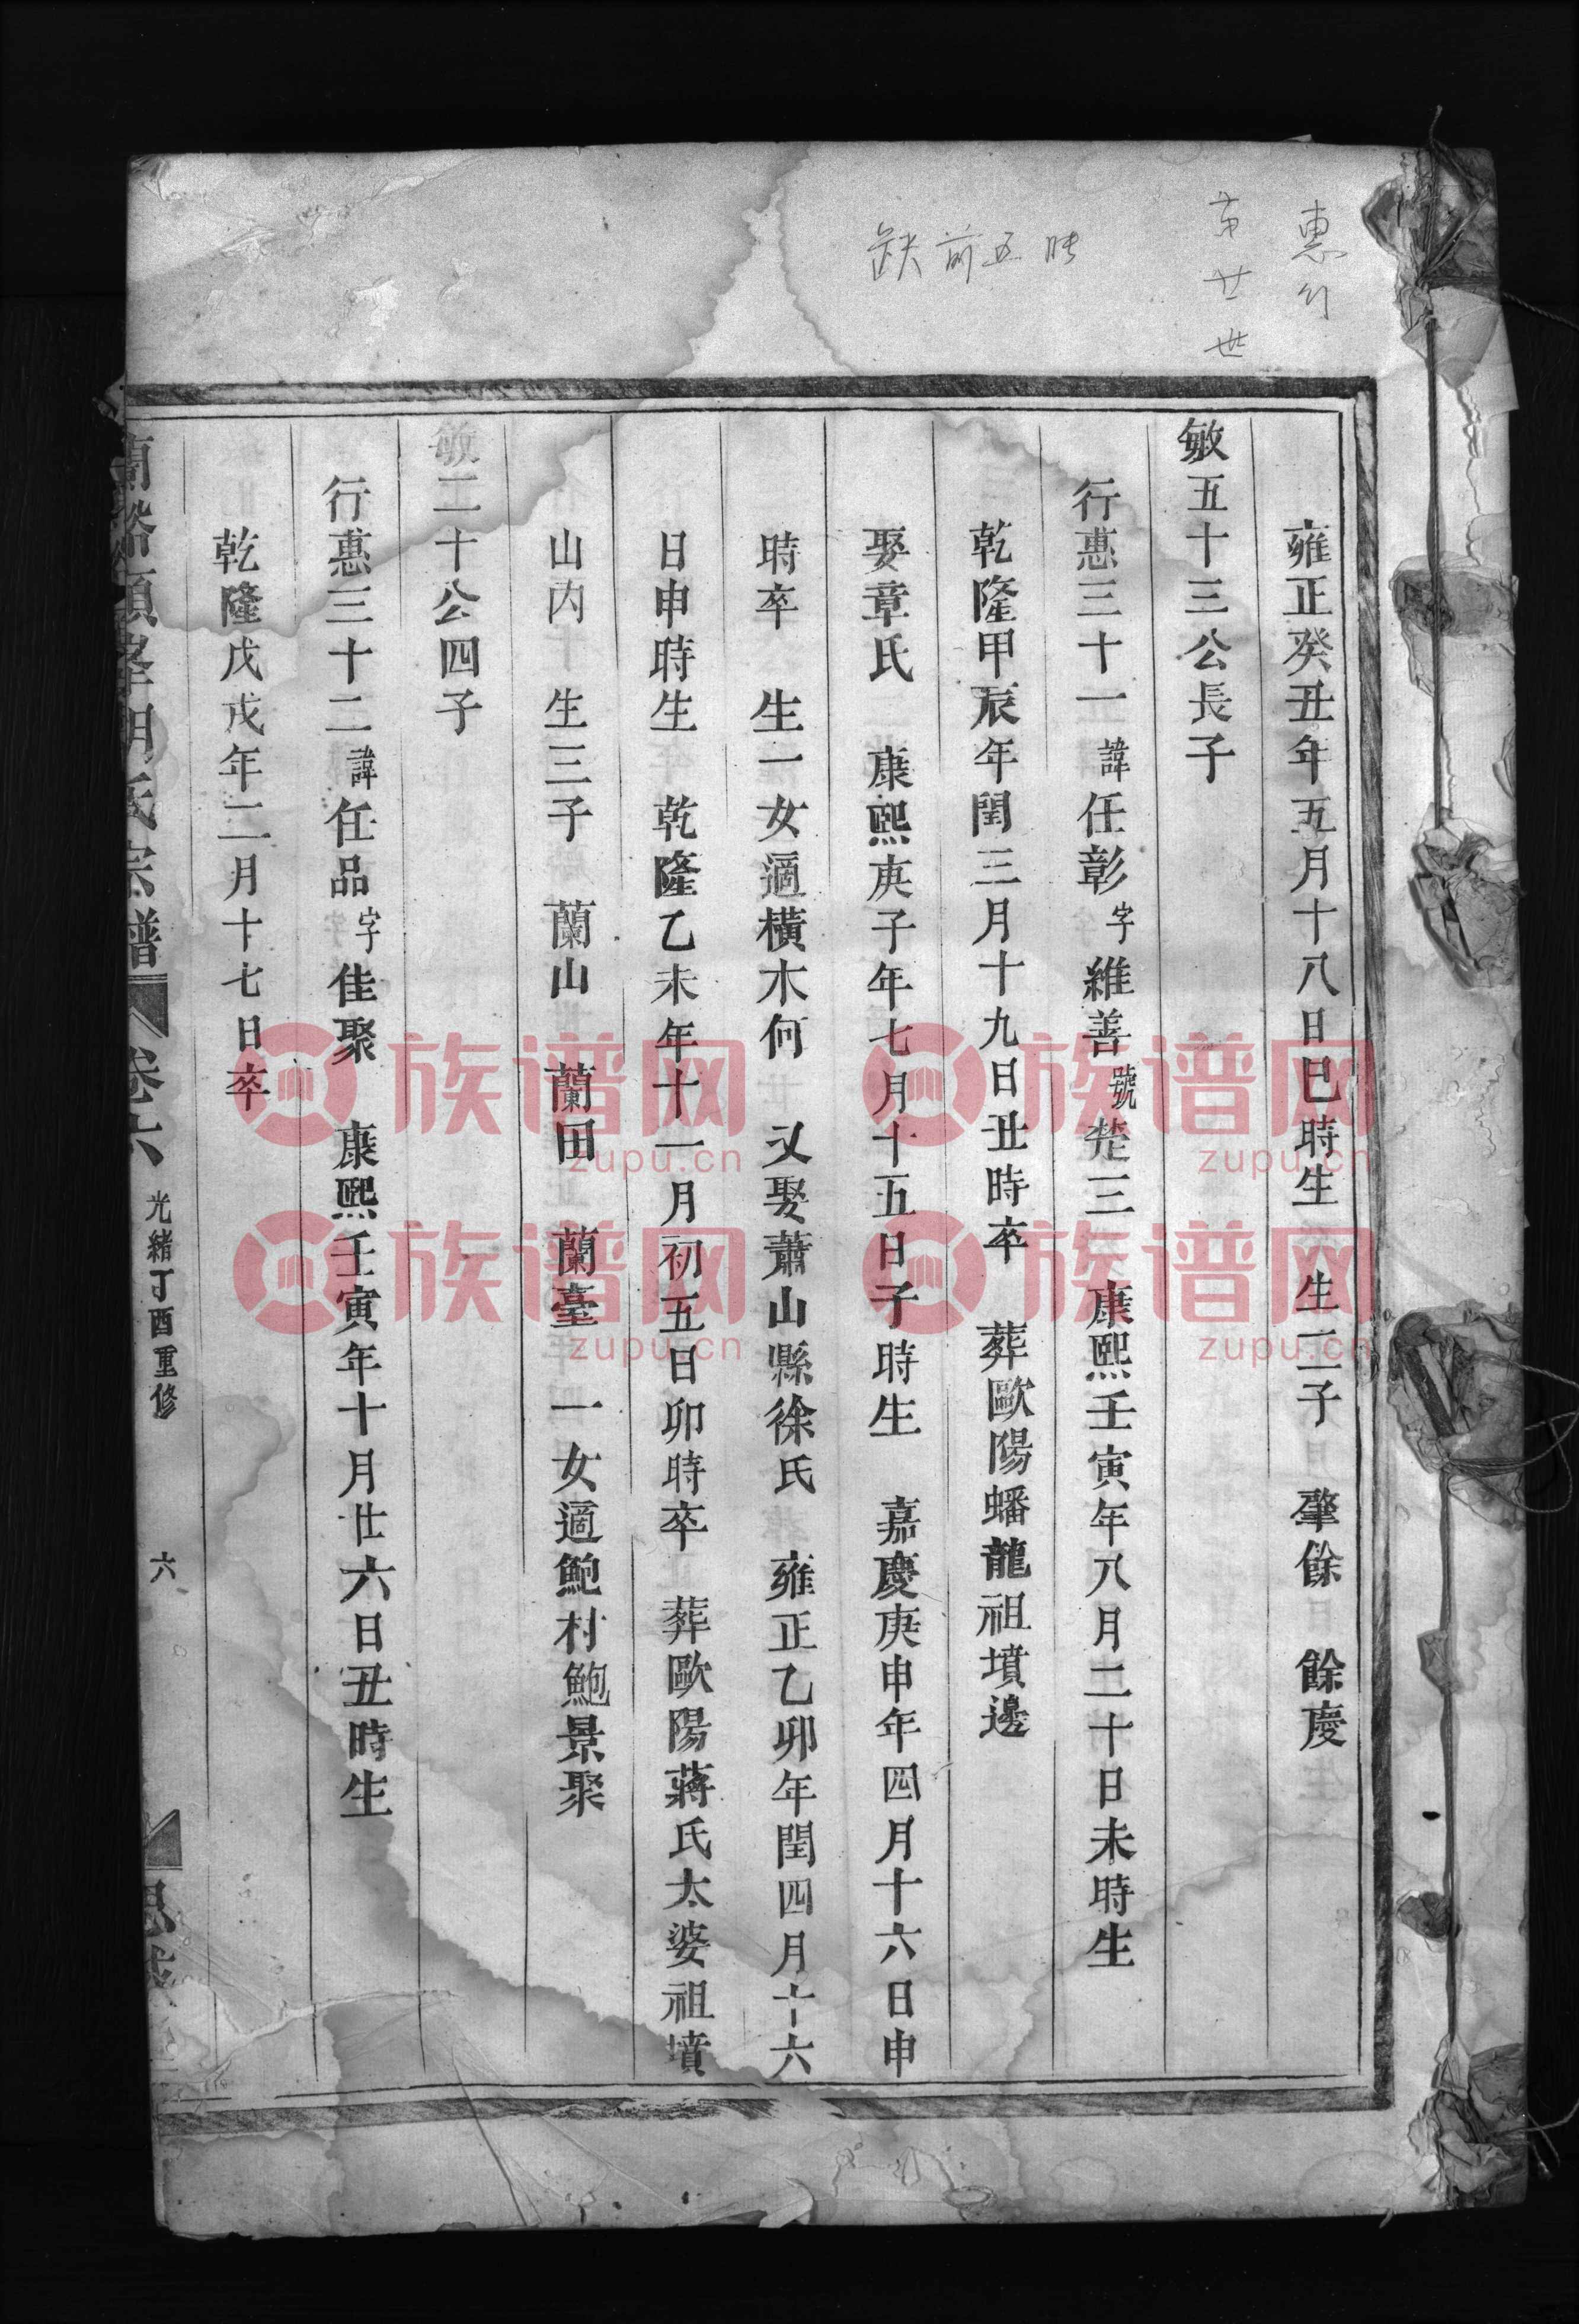 惠行
第廿世
缺前五
雍正癸丑年五月十八日巳時生 生二子 肇餘 餘慶
敏五十三公長子
行惠三十一諱任彰字維善號楚三 康熙壬寅年八月二十日未時生
乾隆甲辰年閏三月十九日丑時卒 葬歐陽蟠龍祖墳邊
娶章氏 康熙庚子年七月十五日子時生 嘉慶庚申年四月十六日申
時卒 生一女適橫木何 又娶蕭山縣徐氏 雍正乙卯年閏四月十六
日申時生 乾隆乙未年十一月初五日卯時卒 葬歐陽蔣氏太婆祖墳
山內 生三子 蘭山 蘭田 蘭臺 一女適鮑村鮑景聚
敏二十公四子
行惠三十二諱任品字佳聚 康熙壬寅年十月廿六日丑時生
乾隆戊戌年二月十七日卒
蘭谿 氏宗譜 卷六 光緒丁酉重修 六
族谱网
zupu.cn
族谱网
zupu.cn
族谱网
zupu.cn
族谱网
zupu.cn